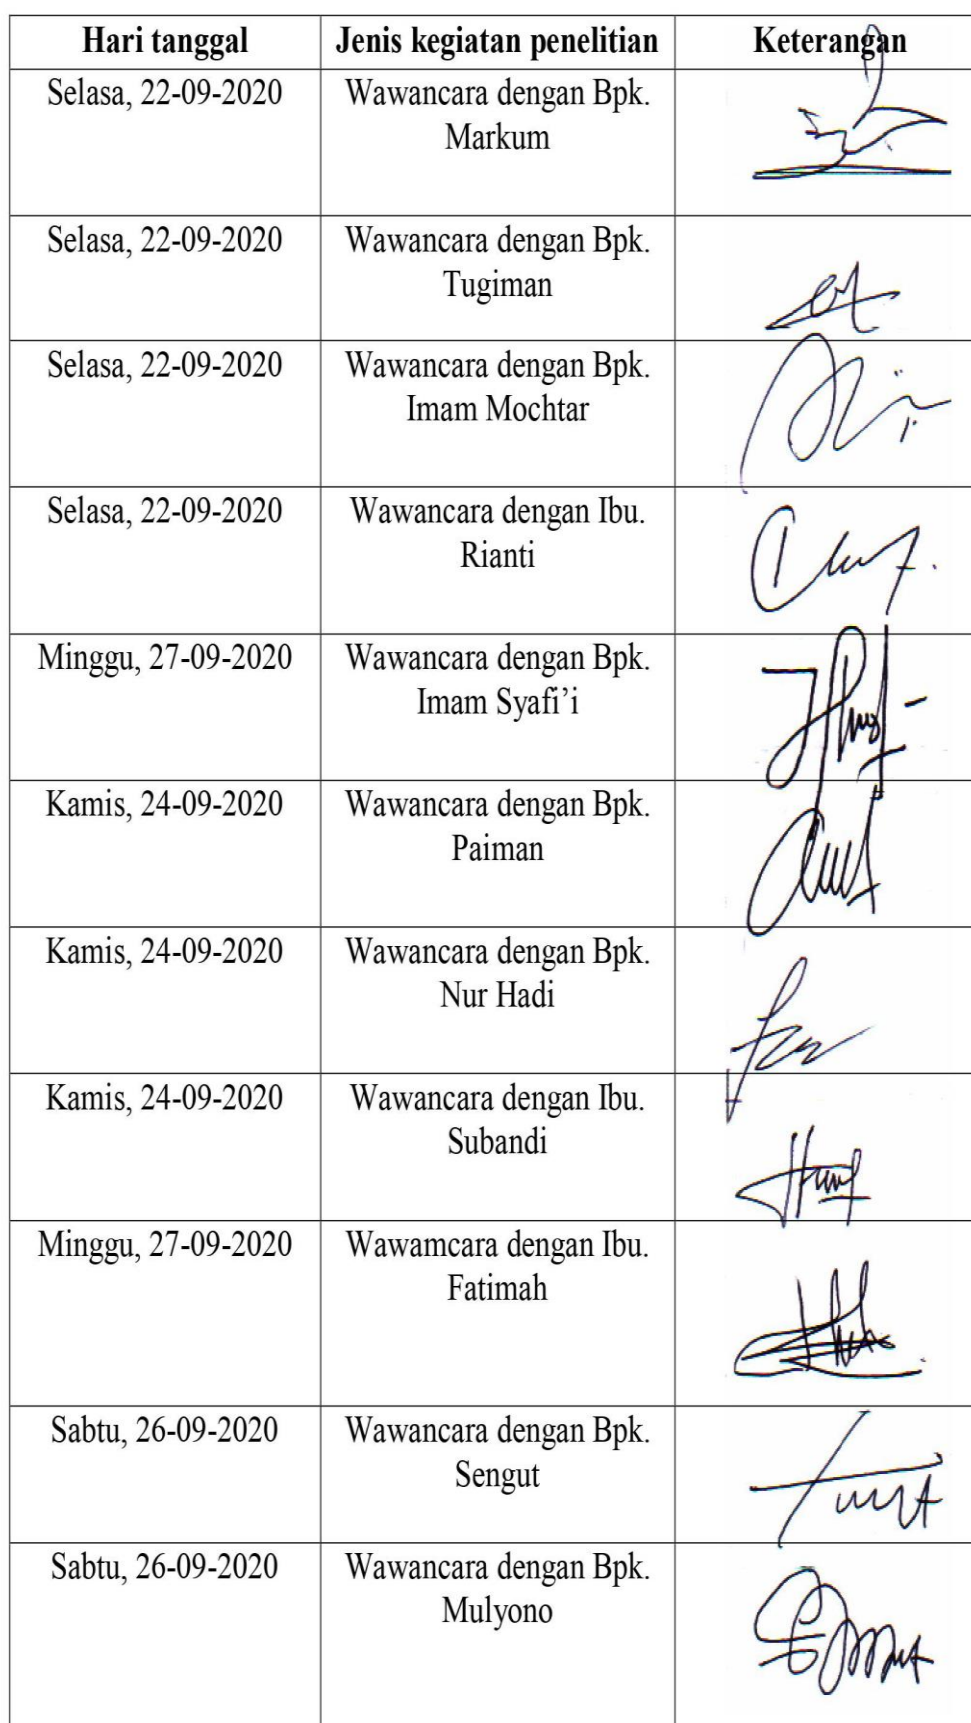 Hari tanggal Jenis kegiatan penelitian Keterangan
Selasa, 22-09-2020 Wawancara dengan Bpk.
Markum
Selasa, 22-09-2020 Wawancara dengan Bpk.
Tugiman
Selasa, 22-09-2020 Wawancara dengan Bpk.
Imam Mochtar
Selasa, 22-09-2020 Wawancara dengan Ibu.
Rianti
Minggu, 27-09-2020 Wawancara dengan Bpk.
Imam Syafi’i
Kamis, 24-09-2020 Wawancara dengan Bpk.
Paiman
Kamis, 24-09-2020 Wawancara dengan Bpk.
Nur Hadi
Kamis, 24-09-2020 Wawancara dengan Ibu.
Subandi
Minggu, 27-09-2020 Wawamcara dengan Ibu.
Fatimah
Sabtu, 26-09-2020 Wawancara dengan Bpk.
Sengut
Sabtu, 26-09-2020 Wawancara dengan Bpk.
Mulyono